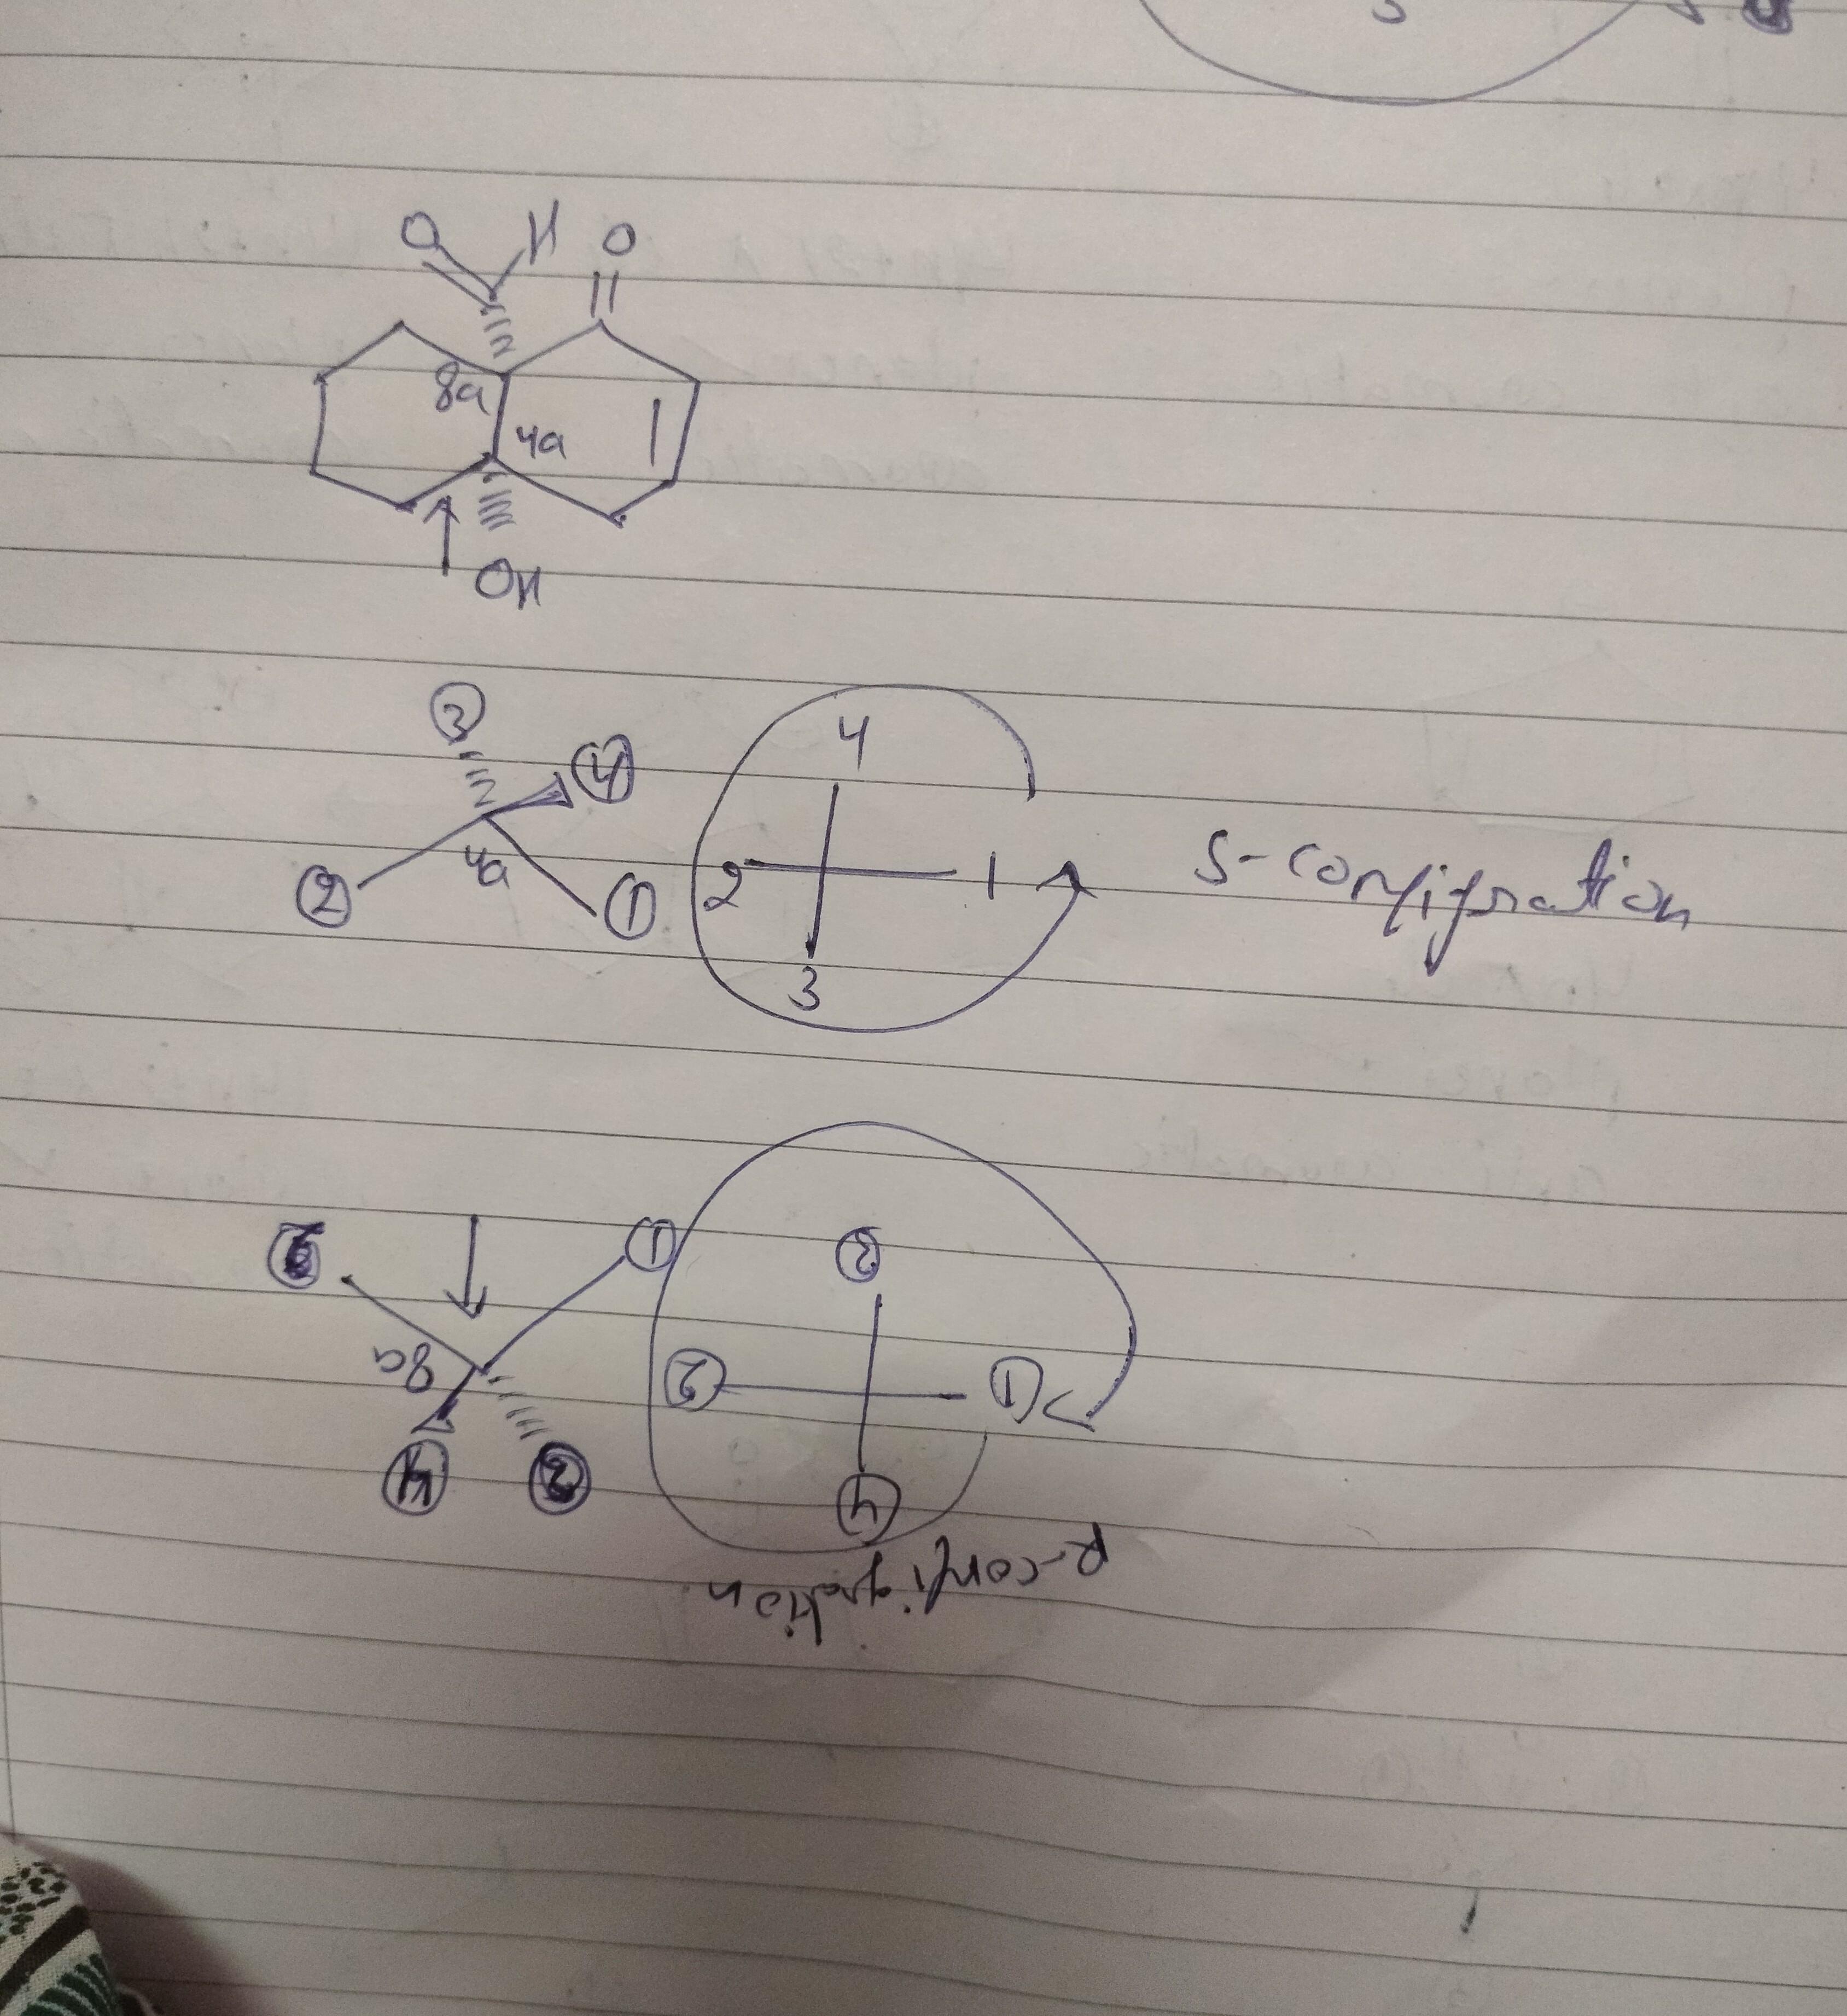 O H O
8a
4a
OH
3
4
2 4a 1
4
2 1 S-configration
3
2 1
3
8a
2 1
4 3
4
R-configration